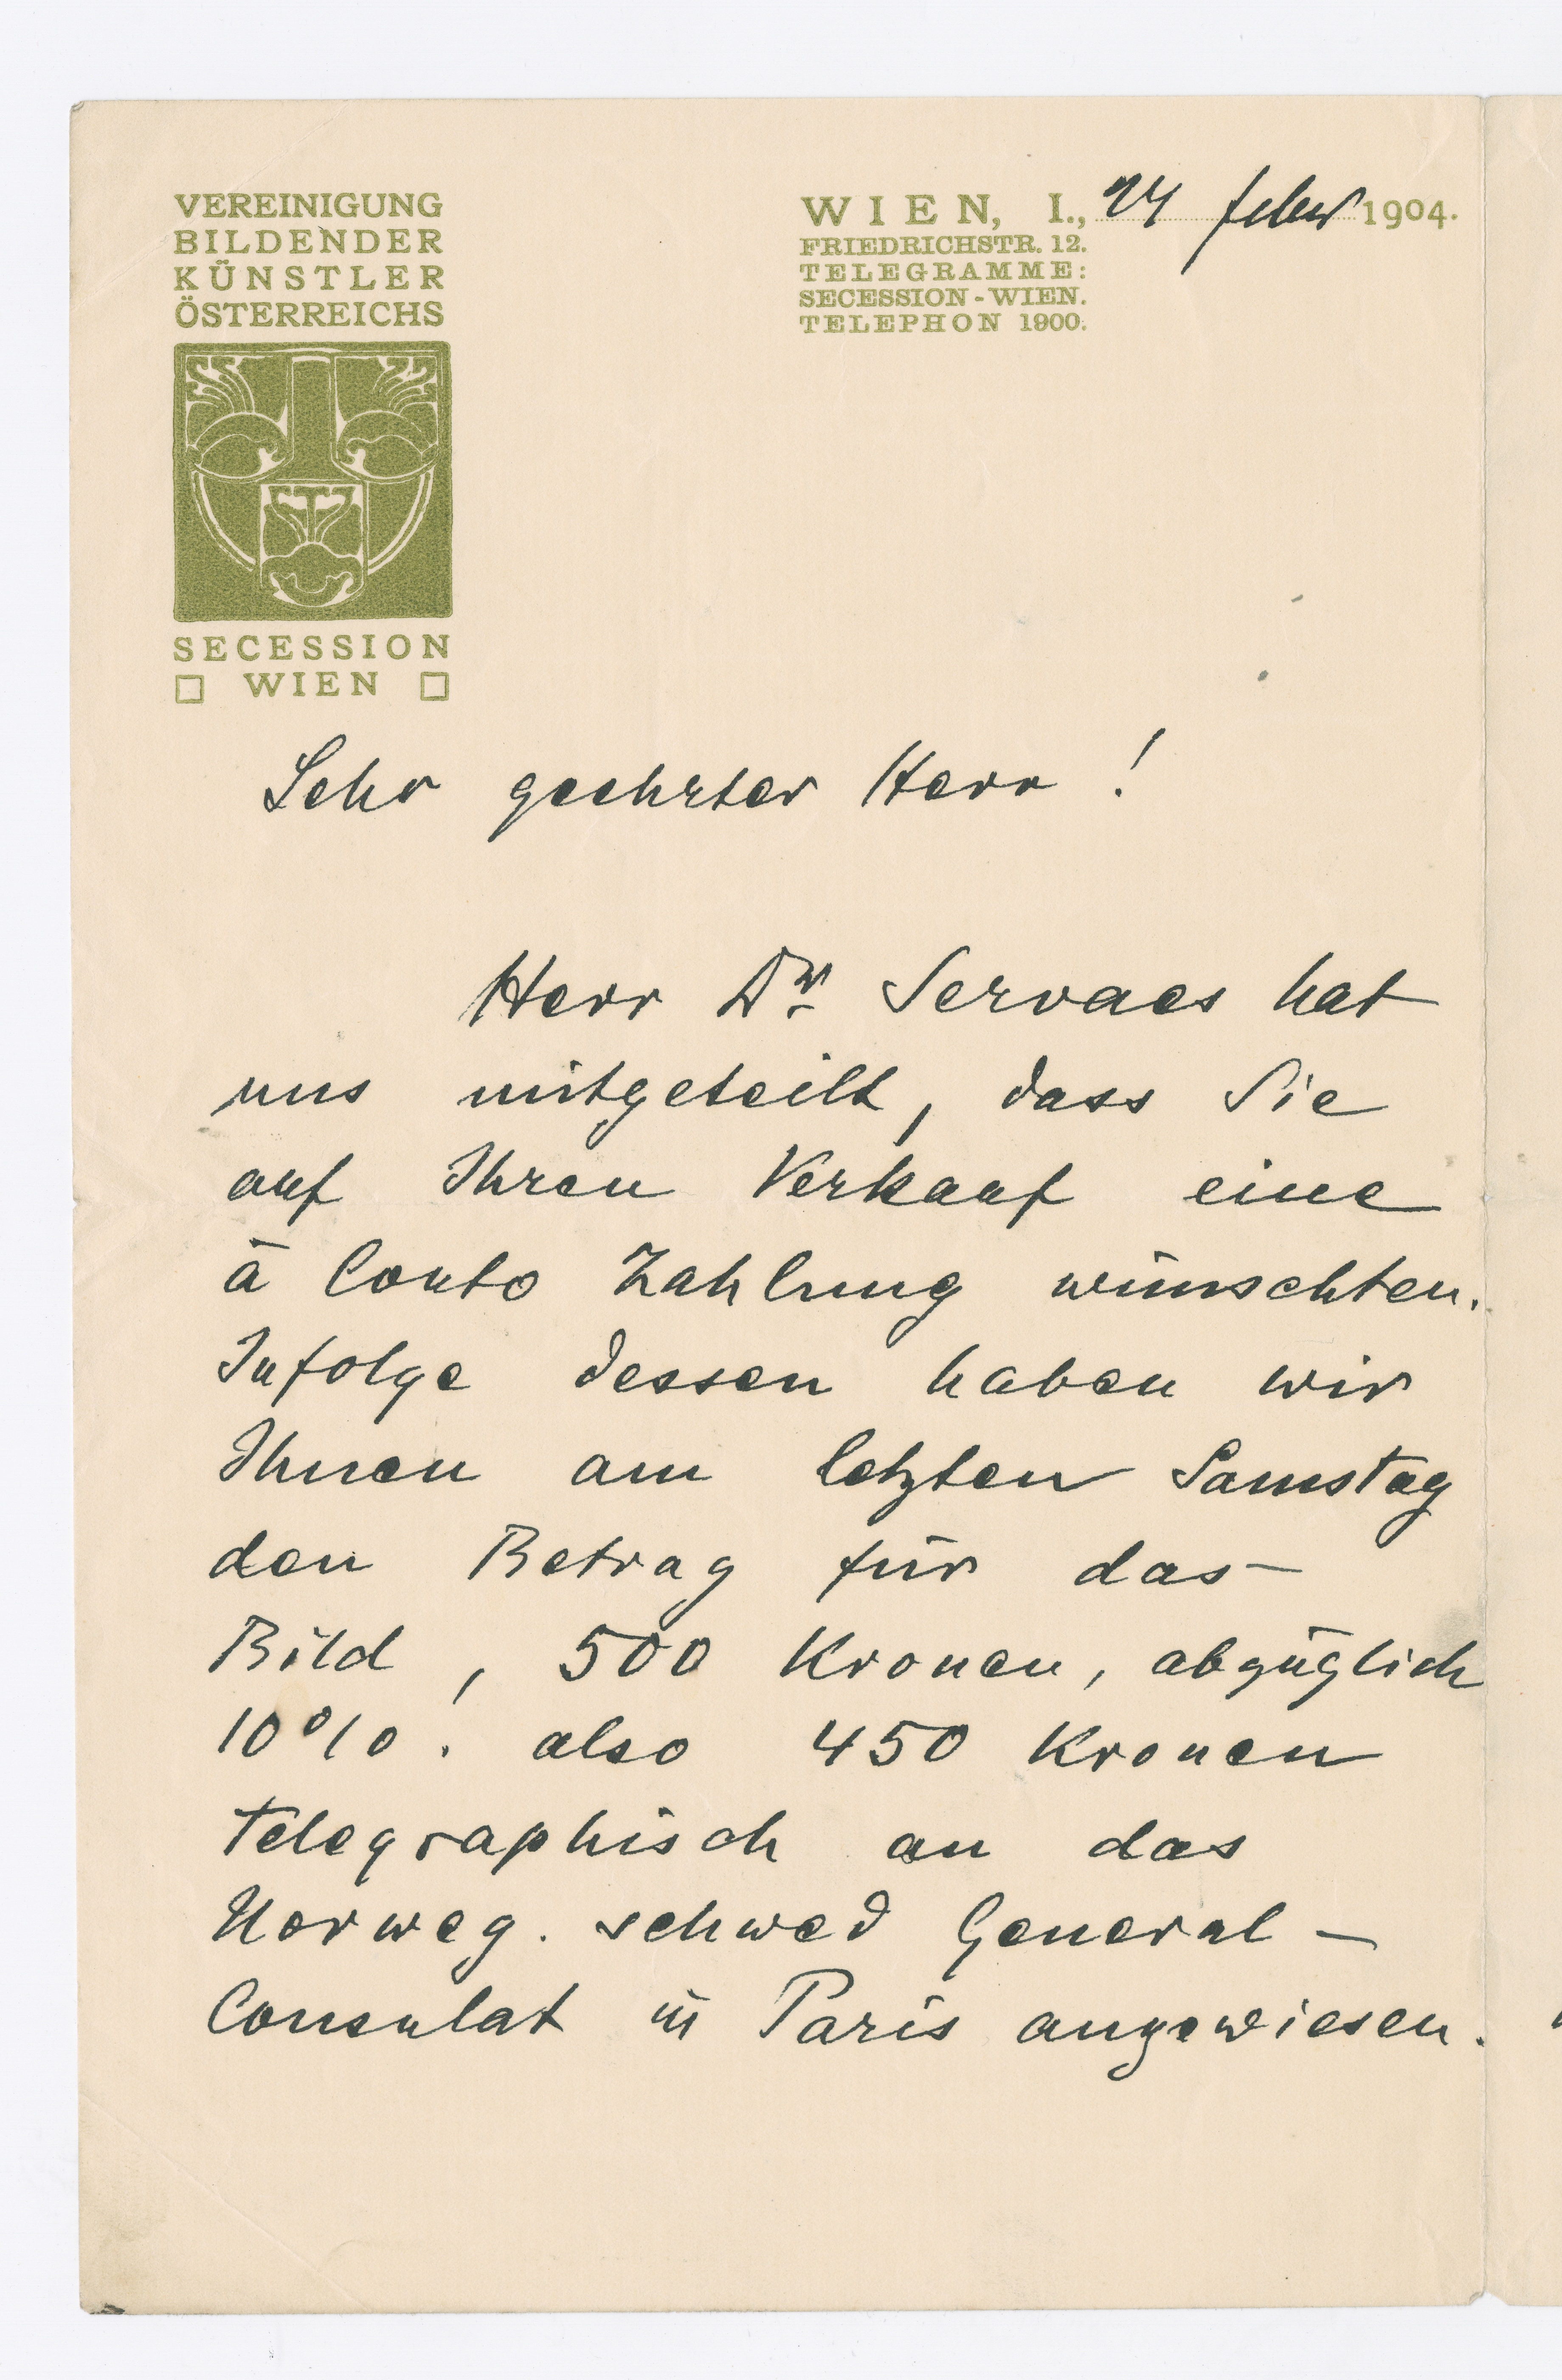 VEREINIGUNG
BILDENDER
KÜNSTLER
ÖSTERREICHS
SECESSION
WIEN
WIEN, I., 24 febr 1904.
FRIEDRICHSTR. 12.
TELEGRAMME:
SECESSION-WIEN.
TELEPHON 1900.
Sehr geehrter Herr !
Herr Dr Servaes hat
uns mitgeteilt, dass Sie
auf Ihren Verkauf eine
à Conto Zahlung wünschten.
Infolge dessen haben wir
Ihnen am letzten Samstag
den Betrag für das
Bild, 500 Kronen, abzüglich
10% ! also 450 Kronen
telegraphisch an das
Norweg. schwed General-
Consulat in Paris angewiesen.